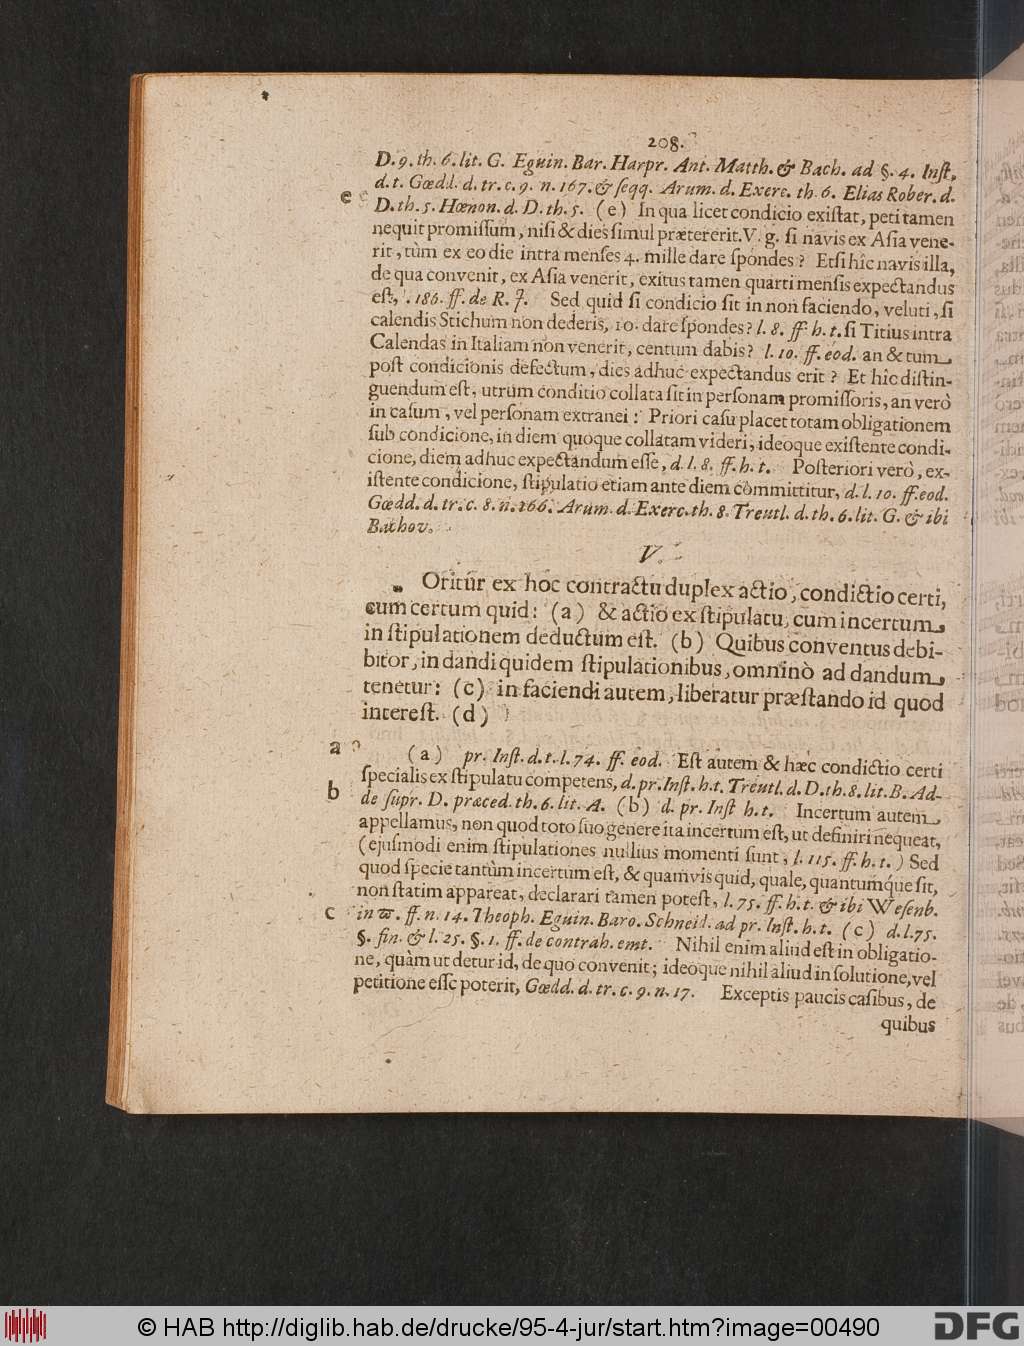 208.
D. 9. th. 6. lit. G. Eguin. Bar. Harpr. Ant. Matth. & Bach. ad §. 4. Inſt.
d. t. Gœdd. d. tr. c. 9. n. 167. & ſeqq. Arum. d. Exerc. th. 6. Elias Rober. d.
e D. th. 5. Hœnon. d. D. th. 5. (e) In qua licet condicio exiſtat, peti tamen
nequit promiſſum, niſi & dies ſimul præterierit. V. g. ſi navis ex Aſia vene-
rit, tùm ex eo die intra menſes 4. mille dare ſpondes? Etſi hîc navis illa,
de qua convenit, ex Aſia venerit, exitus tamen quarti menſis expectandus
eſt, l. 186. ff. de R. J. Sed quid ſi condicio ſit in non faciendo, veluti, ſi
calendis Stichum non dederis, 10. dare ſpondes? l. 8. ff. h. t. ſi Titius intra
Calendas in Italiam non venerit, centum dabis? l. 10. ff. eod. an & tum
poſt condicionis defectum, dies adhuc expectandus erit? Et hîc diſtin-
guendum eſt, utrum conditio collata ſit in perſonam promiſſoris, an verò
in caſum, vel perſonam extranei: Priori caſu placet totam obligationem
ſub condicione, in diem quoque collatam videri, ideoque exiſtente condi-
cione, diem adhuc expectandum eſſe, d. l. 8. ff. h. t. Poſteriori verò, ex-
iſtente condicione, ſtipulatio etiam ante diem committitur, d. l. 10. ff. eod.
Gœdd. d. tr. c. 8. n. 166. Arum. d. Exerc. th. 8. Treutl. d. th. 6. lit. G. & ibi
Bachov.
V.
Oritur ex hoc contractu duplex actio, condictio certi,
cum certum quid: (a) & actio ex ſtipulatu, cum incertum
in ſtipulationem deductum eſt. (b) Quibus conventus debi-
bitor, in dandi quidem ſtipulationibus, omninò ad dandum
tenetur: (c) in faciendi autem, liberatur præſtando id quod
intereſt. (d)
a (a) pr. Inſt. d. t. l. 74. ff. eod. Eſt autem & hæc condictio certi
ſpecialis ex ſtipulatu competens, d. pr. Inſt. h. t. Treutl. d. D. th. 8. lit. B. Ad-
b de ſupr. D. præced. th. 6. lit. A. (b) d. pr. Inſt h. t. Incertum autem
appellamus, non quod toto ſuo genere ita incertum eſt, ut definiri nequeat,
(ejuſmodi enim ſtipulationes nullius momenti ſunt, l. 115. ff. h. t.) Sed
quod ſpecie tantùm incertum eſt, & quamvis quid, quale, quantumq́ue ſit,
non ſtatim appareat, declarari tamen poteſt, l. 75. ff. h. t. & ibi Weſenb.
c in ϖ. ff. n. 14. Theoph. Eguin. Baro. Schneid. ad pr. Inſt. h. t. (c) d. l. 75.
§. fin. & l. 25. §. 1. ff. de contrah. emt. Nihil enim aliud eſt in obligatio-
ne, quàm ut detur id, de quo convenit; ideoque nihil aliud in ſolutione, vel
petitione eſſe poterit, Gœdd. d. tr. c. 9. n. 17. Exceptis paucis caſibus, de
quibus
© HAB http://diglib.hab.de/drucke/95-4-jur/start.htm?image=00490
DFG